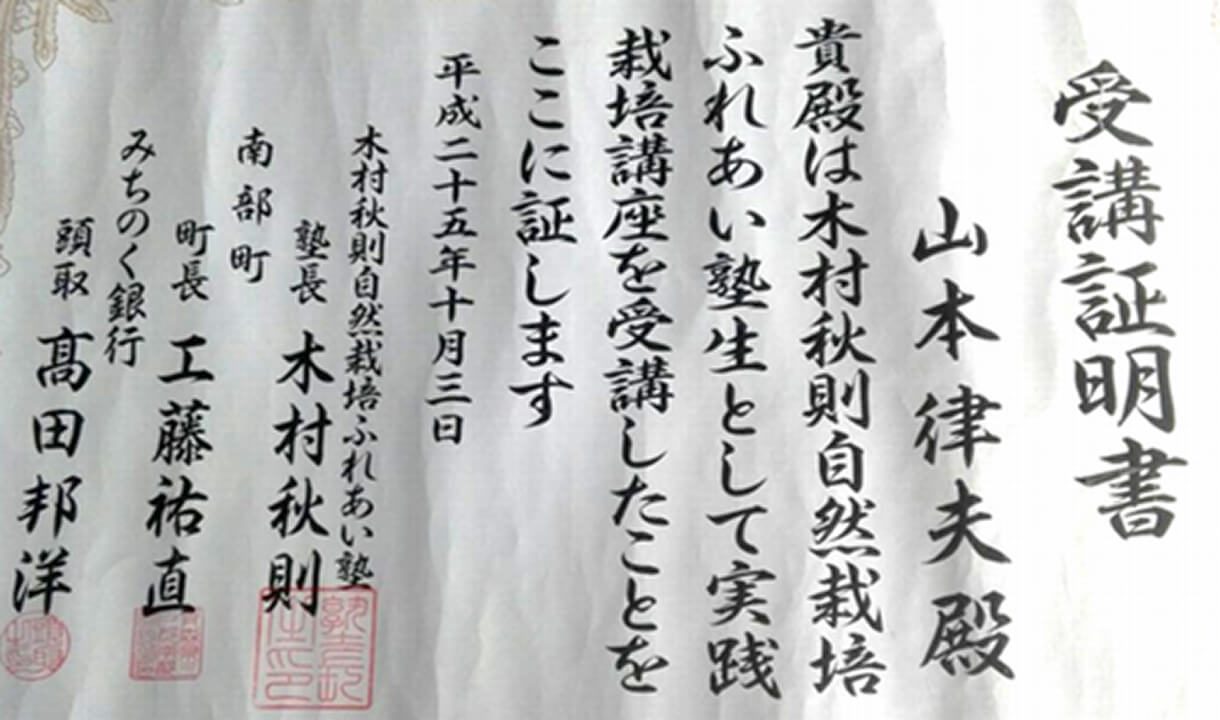 受講証明書
山本律夫殿
貴殿は木村秋則自然栽培
ふれあい塾生として実践
栽培講座を受講したことを
ここに証します
平成二十五年十月三日
木村秋則自然栽培ふれあい塾
塾長 木村秋則
南部町
町長 工藤祐直
みちのく銀行
頭取 髙田邦洋